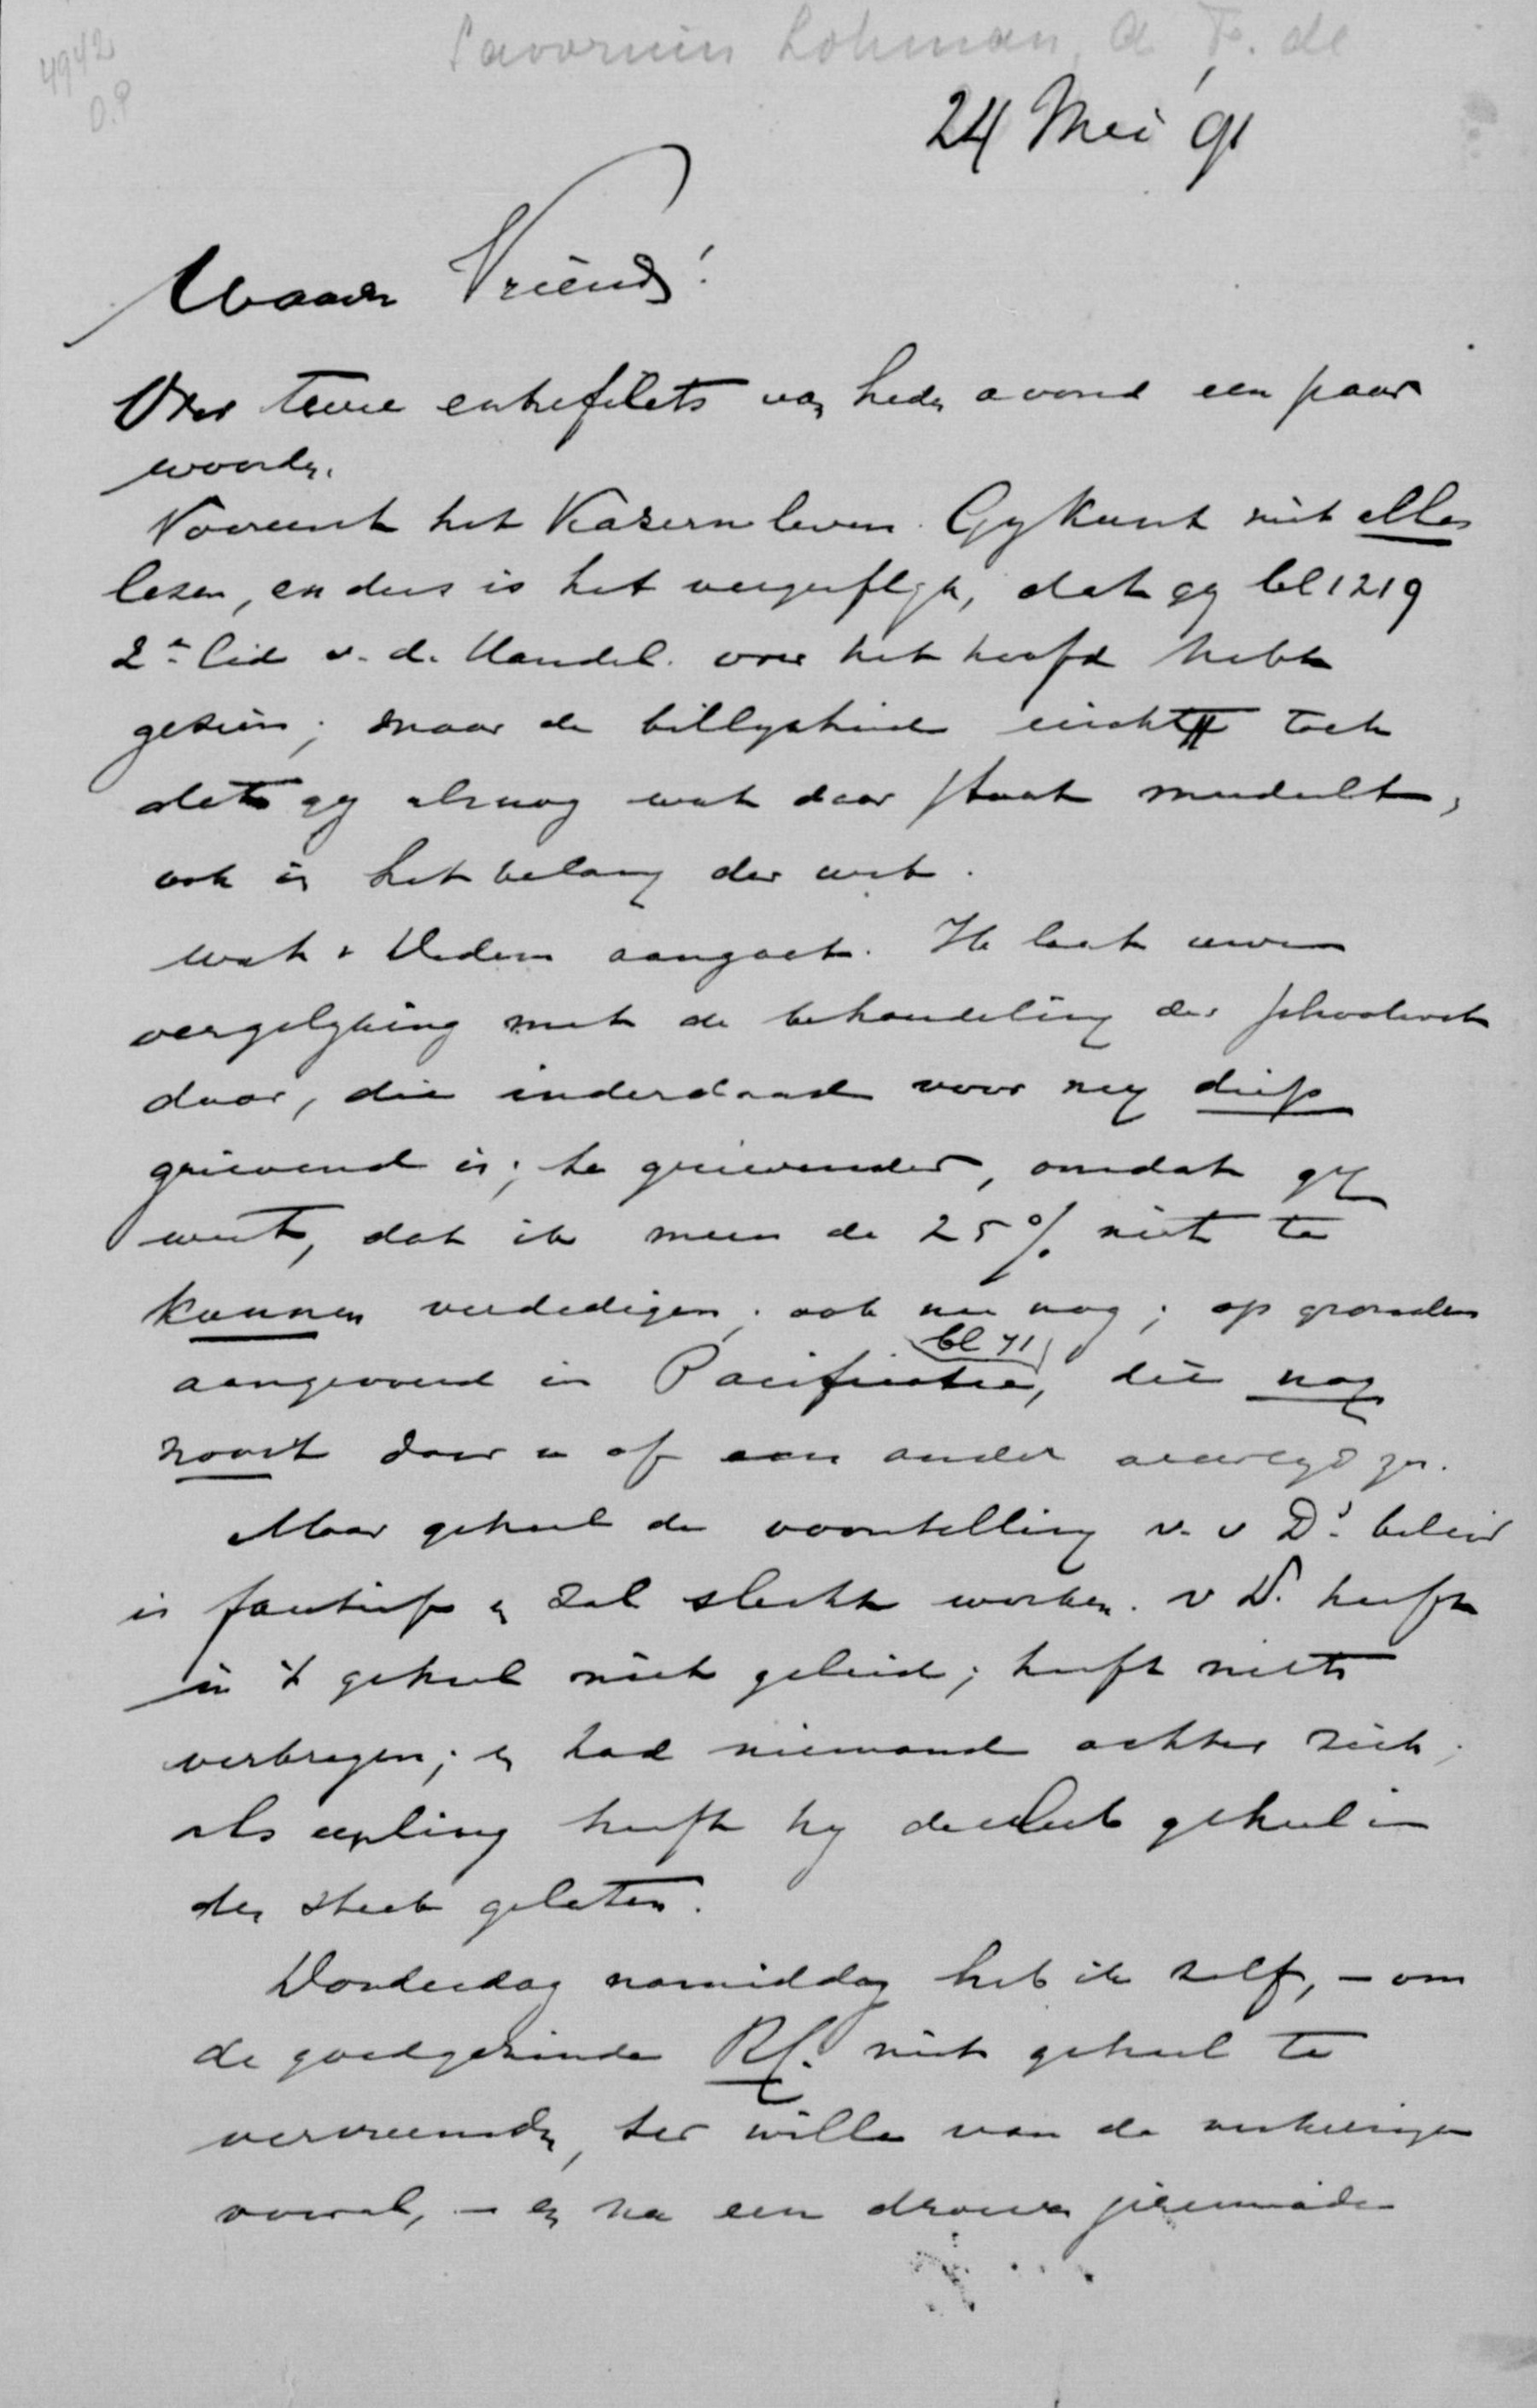 4942
O.P
Savornin Lohman, A. F. de
24 Mei 91
Waarde Vriend!
Over twee entrefilets van heden avond een paar
woorden.
Vooreerst het Kazerneleven. Gy kunt niet alles
lezen, en dus is het vergeeflyk, dat gy bl 1219
2e lid v. d. Handel. over het hoofd hebt
gezien; maar de billykheid eischt toch
dat gy alsnog wat daar staat meedeelt,
ook in het belang der wet.
Wat v Dedem aangaat. Ik laat uwe
vergelyking met de behandeling der schoolwet
daar, die inderdaad voor my diep
grievend is; te grievender, omdat gy
weet, dat ik meen de 25% niet te
kunnen verdedigen; ook nu nog; op gronden
aangevoerd in Pacificatie, bl 71 die nog
nooit door u of een ander weerlegd zyn.
Maar geheel de voorstelling v. v D's beleid
is foutief en zal slecht werken. v D. heeft
in 't geheel niet geleid; heeft niets
verkregen; en had niemand achter zich;
als leerling heeft hy de club geheel in
den steek gelaten.
Donderdag namiddag heb ik zelf, - om
de goedgezinde Rf. niet geheel te
vervreemden, ter wille van de verkiezingen
vooral, - en na een droeve jeremiade